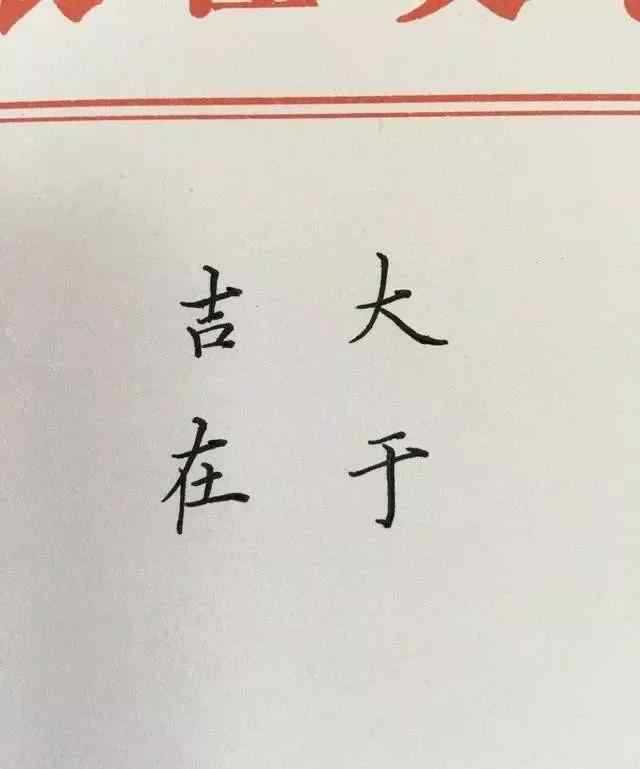 吉大
在于